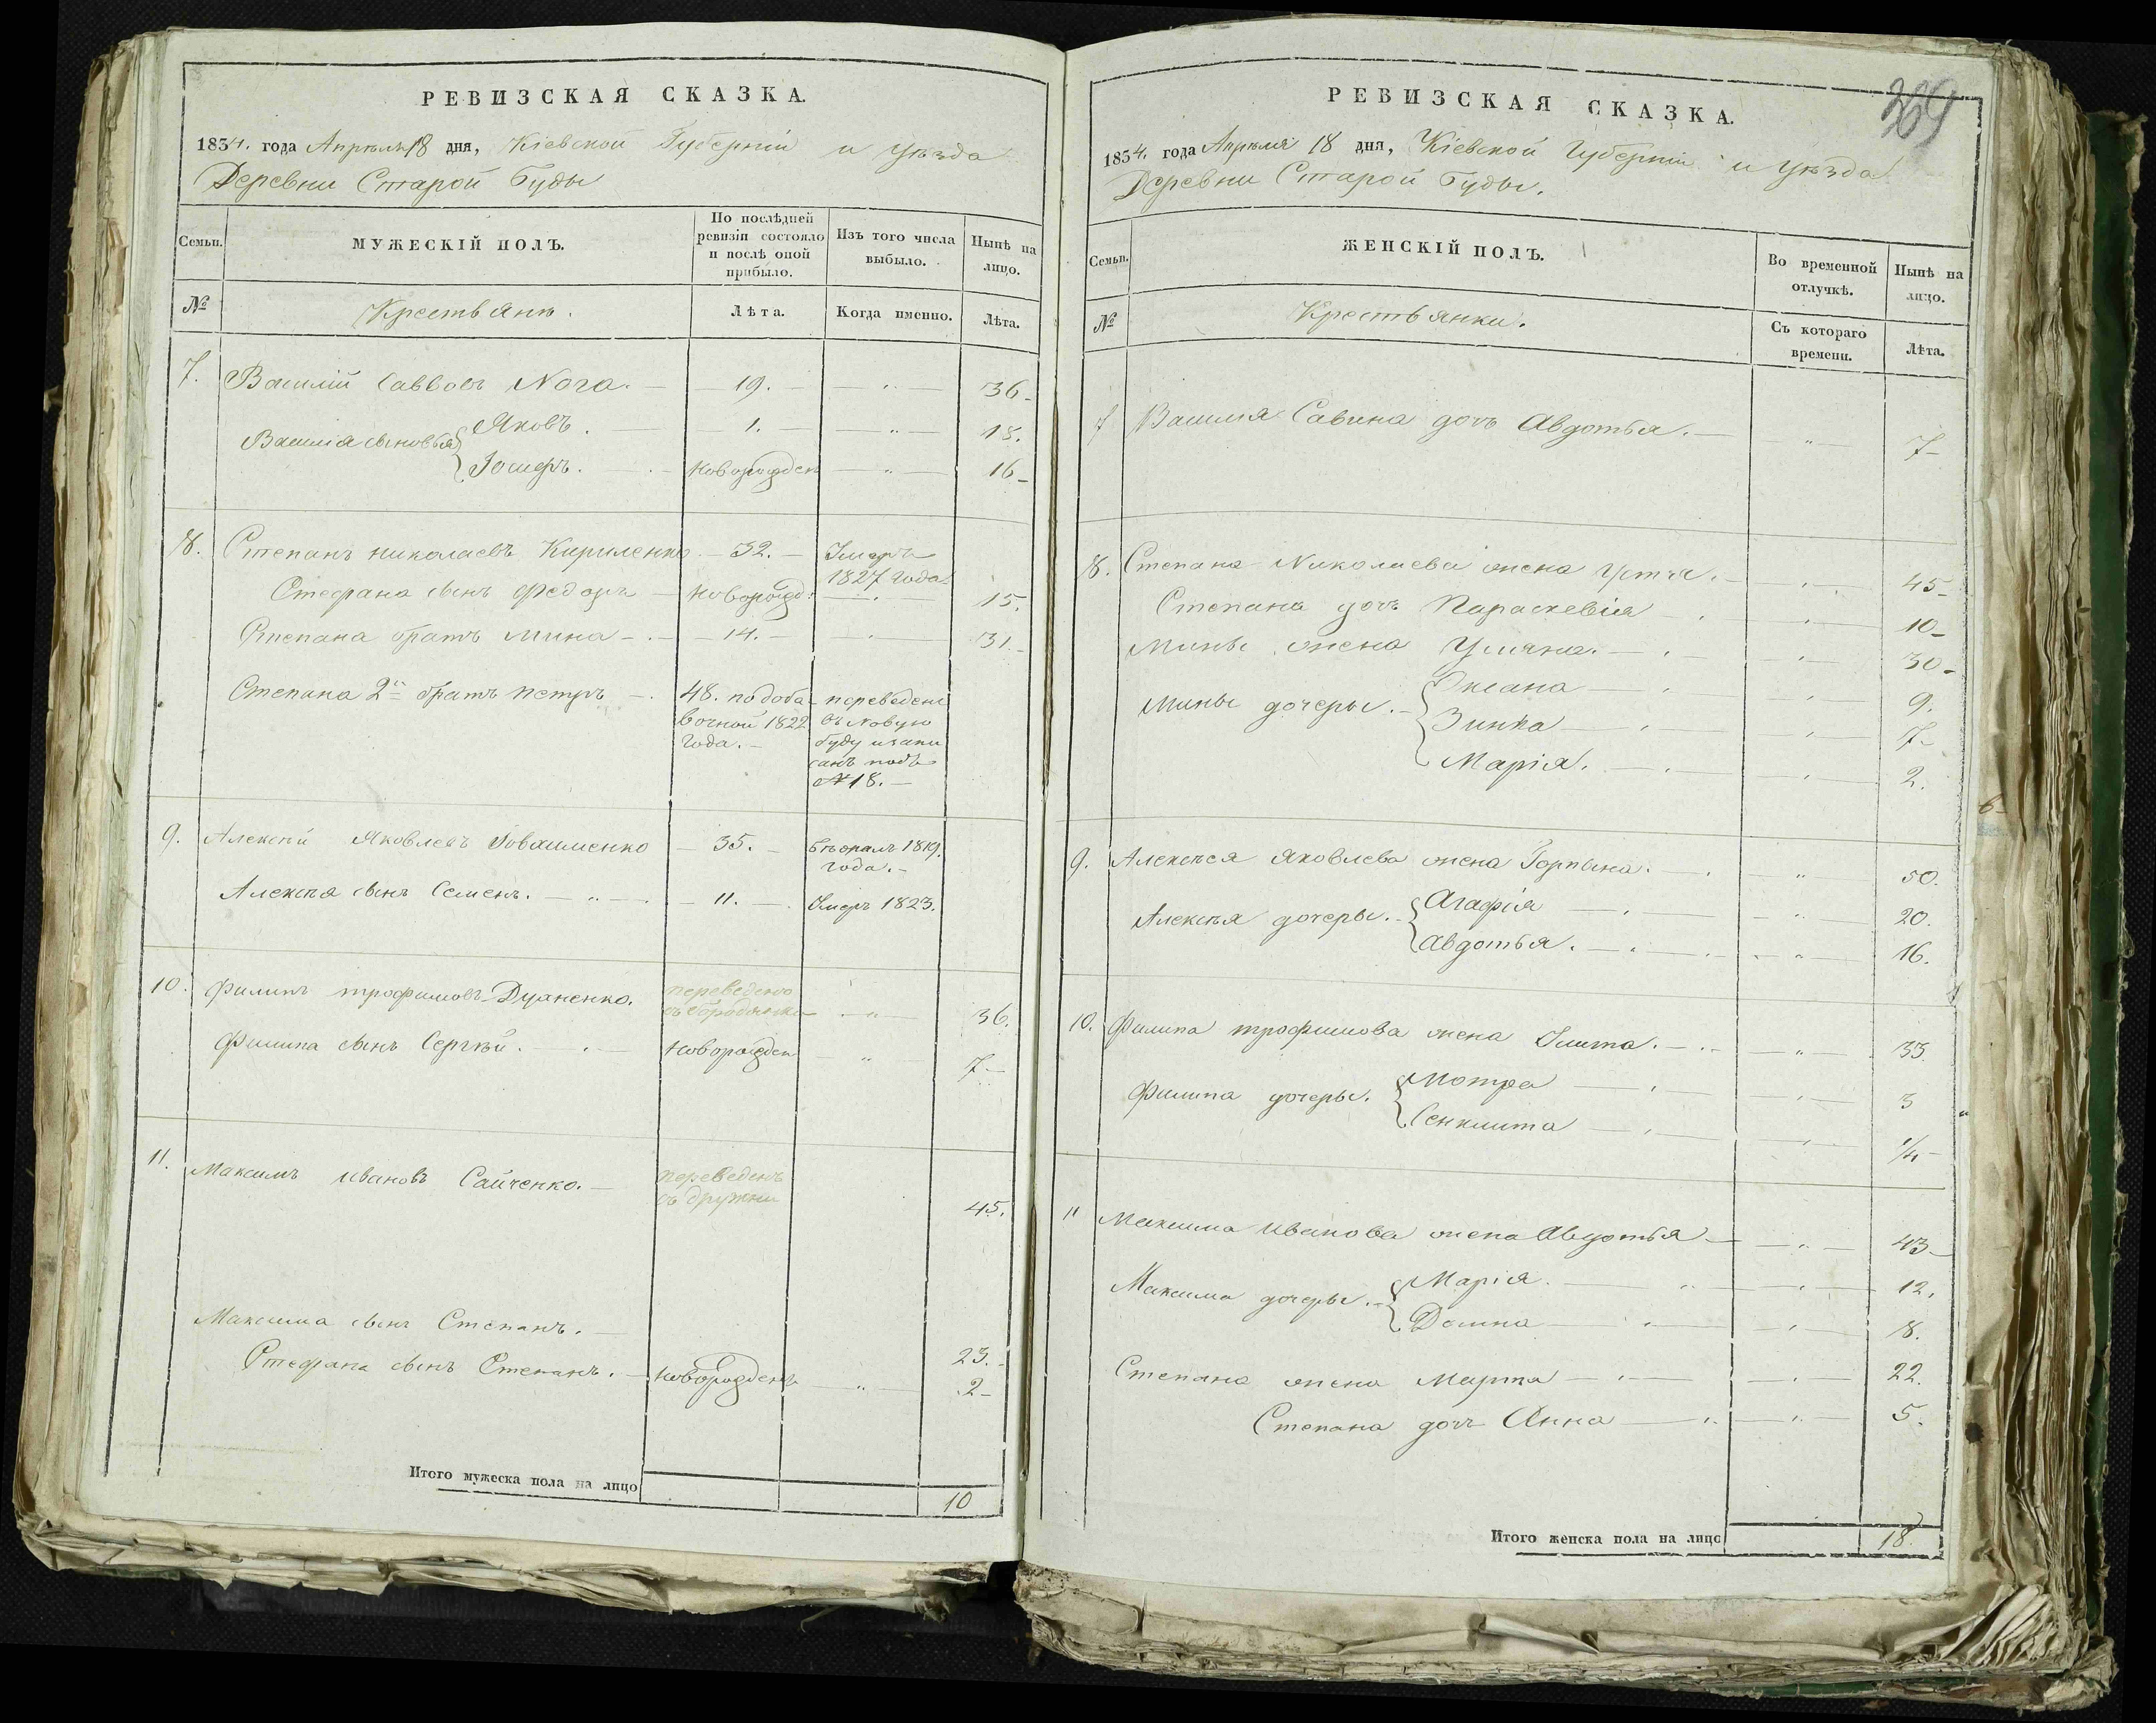 РЕВИЗСКАЯ СКАЗКА.
1834. года Апрѣля 18 дня, Кіевской Губерніи и уѣзда
Деревни Старой Буды
Семьи.
МУЖЕСКІЙ ПОЛЪ.
По послѣдней ревизіи состояло и послѣ оной прибыло.
Изъ того числа выбыло.
Нынѣ на лицо.
№
Крестьянъ.
Лѣта.
Когда именно.
Лѣта.
7. Василій Саввовъ Нога. — 19. — " — 36 —
Василія сыновья { Яковъ. — 1. — " — 18.
Іосифъ. — новорожден — " — 16 —
8. Степанъ николаевъ Кириленко — 32. — Умеръ
1827 года.
Стефана сынъ Федоръ — новорожд: — " — 15.
Степана братъ Мина — 14. — " — 31. —
Степана 2й братъ петръ — 48. по доба переведенъ
вочной 1822 въ Новую
года. — Буду и запи
санъ подъ
№ 18. —
9. Алексѣй Яковлевъ — 35. — Бѣжалъ 1819.
года. —
Алексѣя сынъ Семенъ. — " — 11. — Умеръ 1823.
10. Филипъ трофимовъ переведенъ
— " — 36.
Филипа сынъ Сергѣй. — новорожден — " — 7 —
11. Максимъ ивановъ Сайченко. — переведенъ
съ дружни 45.
Максима сынъ Степанъ. — 23. —
Стефана сынъ Степанъ. — новорожденъ — " — 2 —
Итого мужеска пола на лицо 10
369
РЕВИЗСКАЯ СКАЗКА.
1834. года Апрѣля 18 дня, Кіевской Губерніи и уѣзда
Деревни Старой Буды.
Семьи.
ЖЕНСКІЙ ПОЛЪ.
Во временной отлучкѣ.
Нынѣ на лицо.
№
Крестьянки.
Съ котораго времени.
Лѣта.
7 Василія Савина дочь Авдотья. — " — 7 —
8. Степана Николаева жена Устія. — " — 45 —
Степана дочь Параскевія — " — 10 —
Мины жена Уліяна. — " — 30 —
Мины дочеры. { Оксана — " — 9.
Зинка — " — 7 —
Марія. — " — 2.
9. Алексѣя Яковлева жена Горпына. — " — 50.
Алексѣя дочеры. { Агафія — " — 20.
Авдотья. — " — 16.
10. Филипа трофимова жена Улита. — " — 33.
Филипа дочеры. { Мотра — " — 3
— " — 1/4 —
11 Максима Иванова жена Авдотья — " — 43 —
Максима дочеры. { Марія. — " — 12.
Домна — " — 8.
Степана жена Марта — " — 22.
Степана дочь Анна — " — 5.
Итого женска пола на лицо 18.